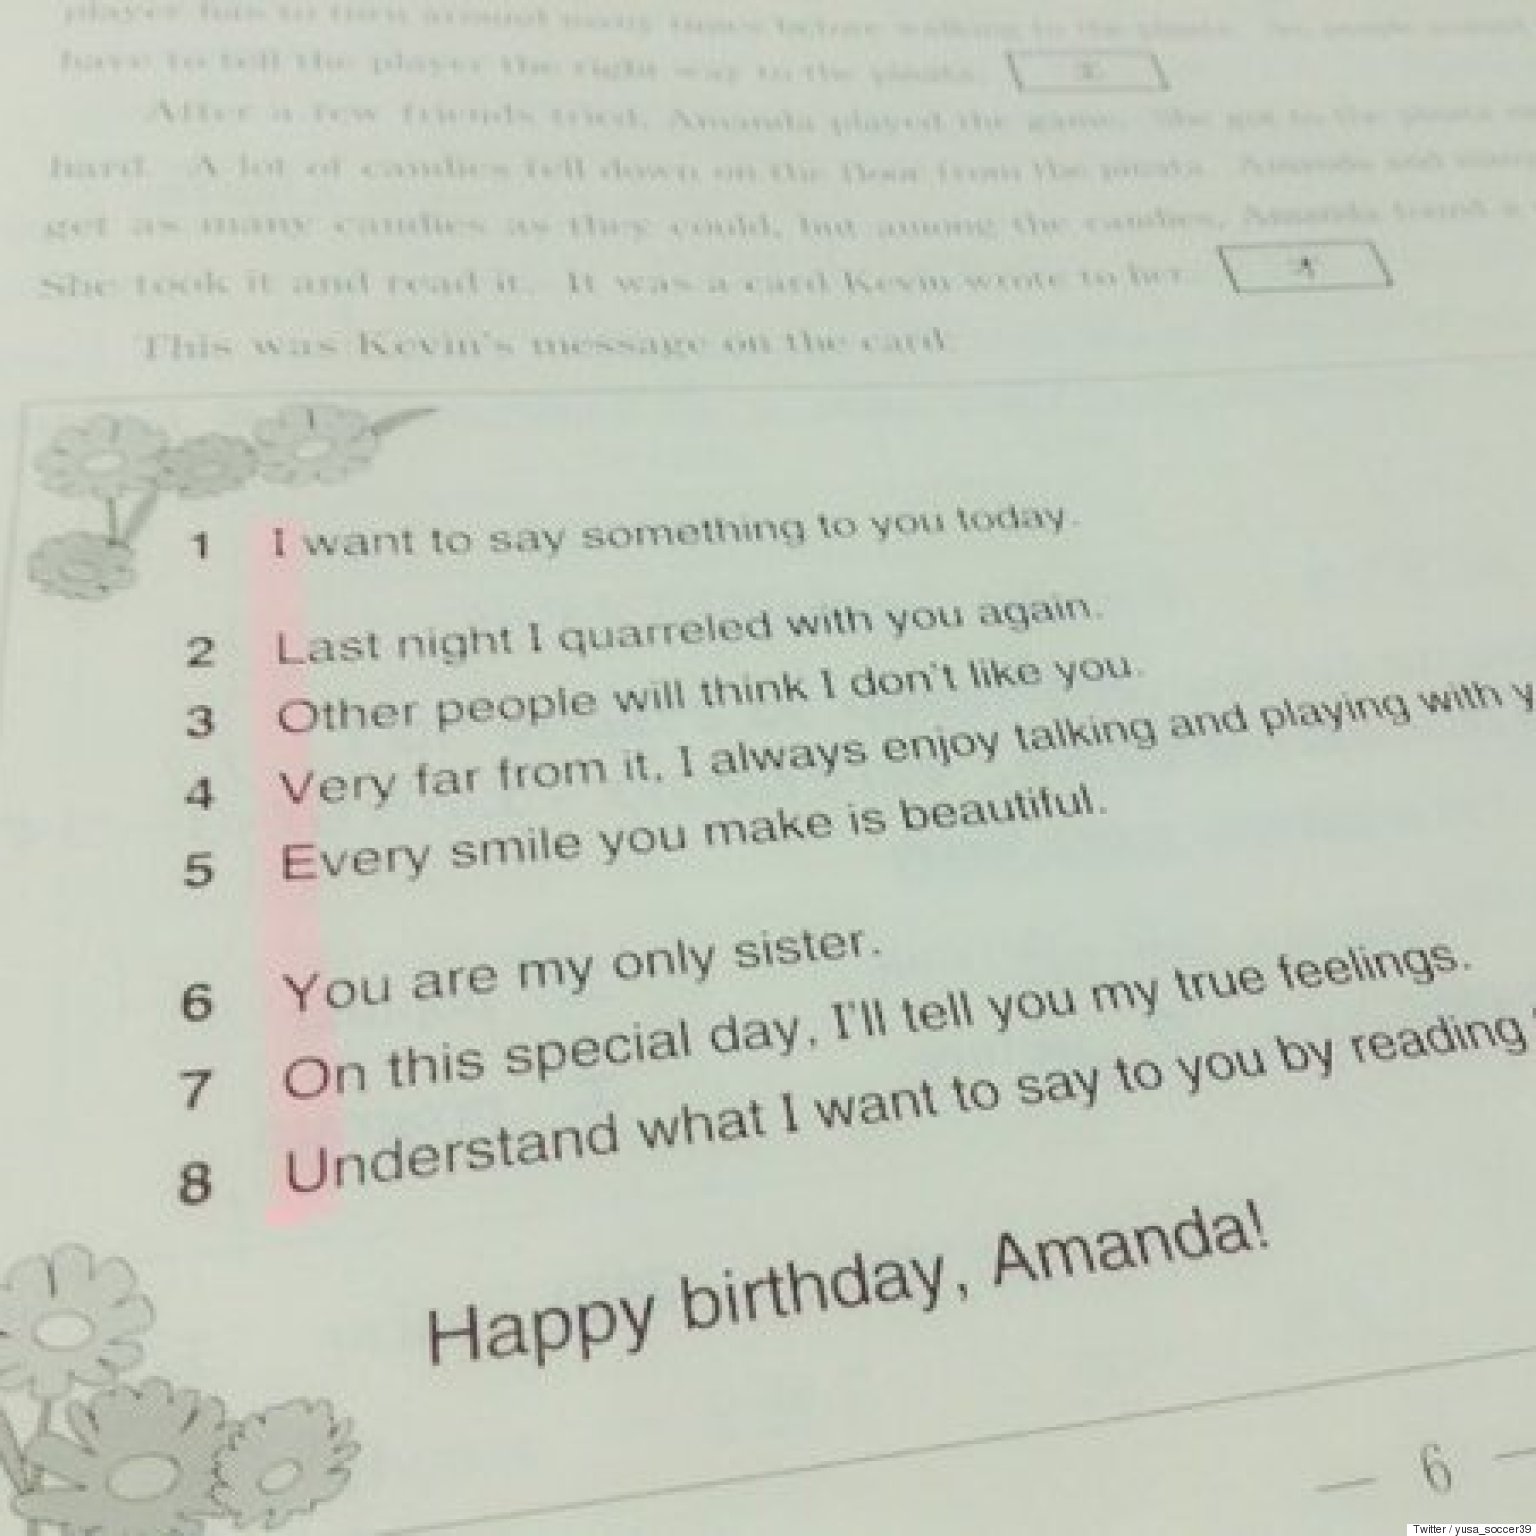 player has to turn around many times before walking to the pinata.
have to tell the player the right way to the pinata.
After a few friends tried, Amanda played the game. She got to the pinata
hard. A lot of candies fell down on the floor from the pinata. Amanda and many
get as many candies as they could, but among the candies, Amanda found a
She took it and read it. It was a card Kevin wrote to her.
This was Kevin's message on the card.
1 I want to say something to you today.
2 Last night I quarreled with you again.
3 Other people will think I don't like you.
4 Very far from it, I always enjoy talking and playing with y
5 Every smile you make is beautiful.
6 You are my only sister.
7 On this special day, I'll tell you my true feelings.
8 Understand what I want to say to you by reading
Happy birthday, Amanda!
— 6 —
Twitter / yusa_soccer39